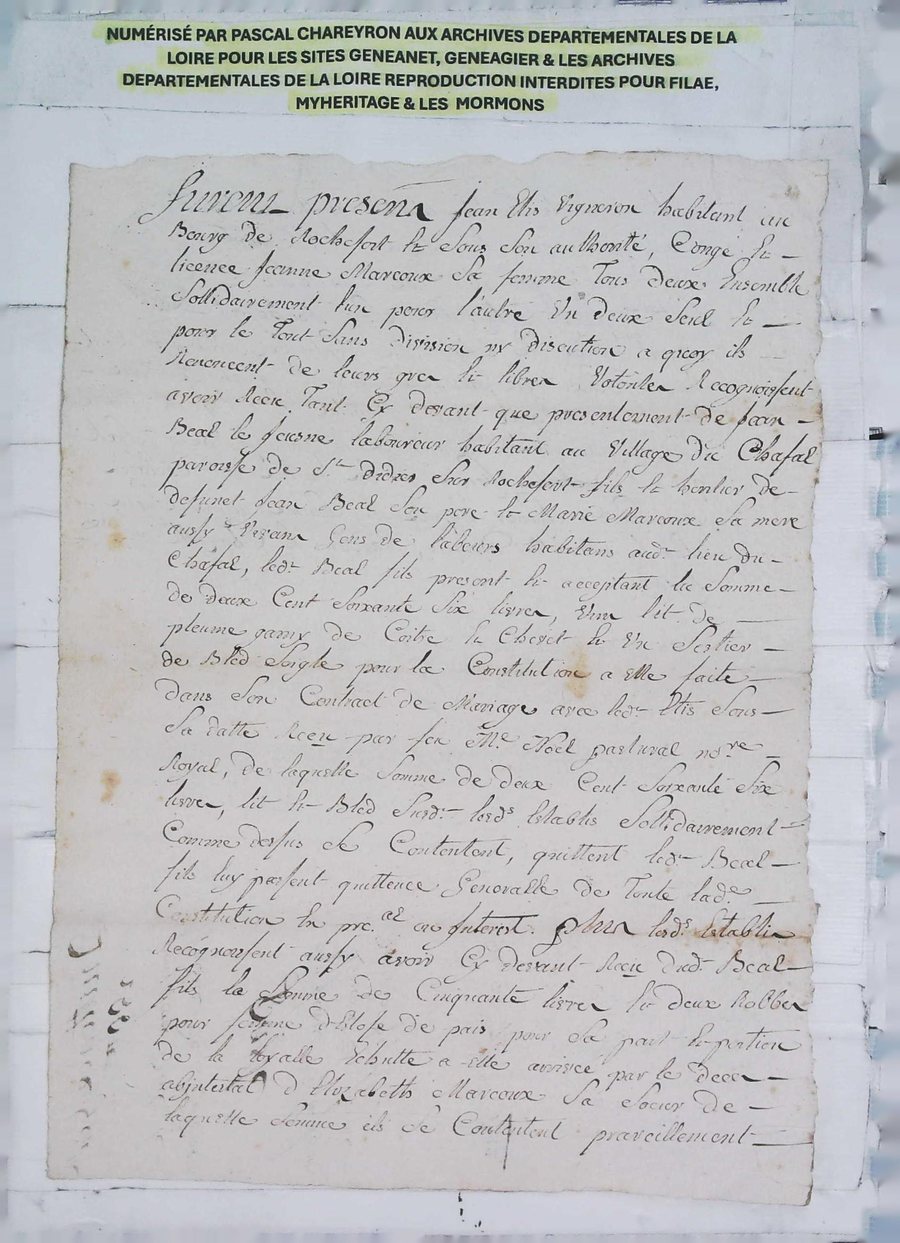 NUMÉRISÉ PAR PASCAL CHAREYRON AUX ARCHIVES DEPARTEMENTALES DE LA
LOIRE POUR LES SITES GENEANET, GENEAGIER & LES ARCHIVES
DEPARTEMENTALES DE LA LOIRE REPRODUCTION INTERDITES POUR FILAE,
MYHERITAGE & LES MORMONS
Furent presens Jean Elis Vigneron habitant au
Bourg de Rochefort et sous son authorité, Congé et
licence Jeanne Marcoux sa femme Tous deux Ensemble
Sollidairement l'un pour l'autre Un deux seul et
pour le Tout sans division ny discution a quoy ils
Renoncent de leurs grez et libres Volontez Recognoissent
avoir Receu Tant Cy devant que presentement de Jean
Beal le jeusne laboureur habitant au Village du Chafal
paroisse de St Didier Sur Rochefort fils et heritier de
defunct Jean Beal son pere et Marie Marcoux sa mere
aussy Vivans Gens de labeurs habitans audt lieu du
Chafal, ledt Beal fils present et acceptant la Somme
de deux Cent Soixante Six livres, Un lit de
pleume garny de Coitre et Chevet et Un Sestier
de Bled Seigle pour la Constitution a elle faite
dans son Contract de Mariage avec ledt Elis Sous
Sa datte Receu par feu Me Noel pastural nore
Royal, de laquelle Somme de deux Cent Soixante Six
livres, lit et Bled Susdt lesds Establis Sollidairement
Comme dessus Se Contentent, quittent ledt Beal
fils luy passent quittence Generalle de Toute lade
Constitution En pre.al ou Interest. plus lesds Establis
Recognoissent aussy avoir Cy devant Receu dudt Beal
fils la Somme de Cinquante livres et deux Robbes
pour femme d'Estofe de pais pour sa part et portion
de la Echutte a elle arrivée par le deces
abjntestat d'Elizabeth Marcoux Sa Soeur de
laquelle Somme ils Se Contentent prareillement